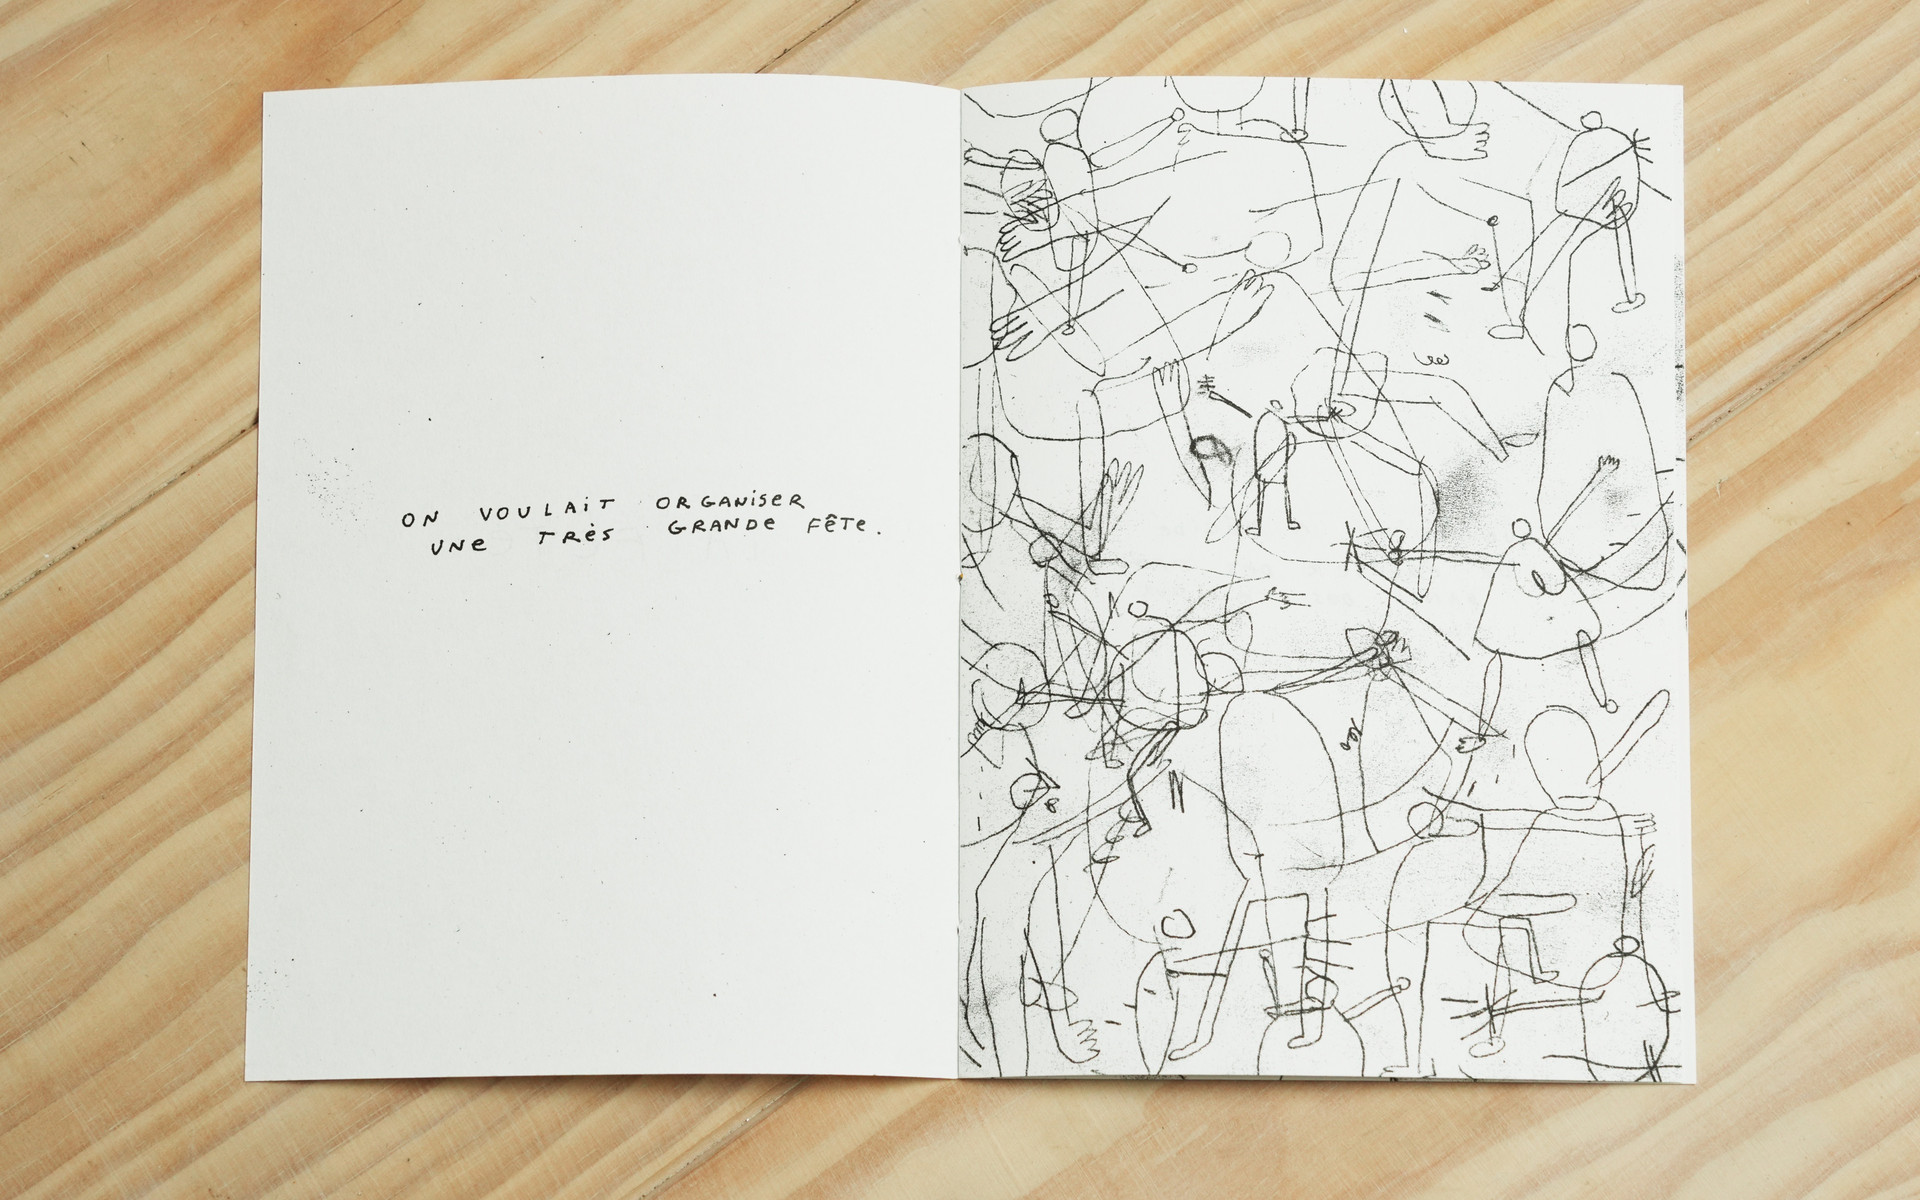 ON VOULAiT ORGANiSER
UNe TRès GRANDe FêTe.